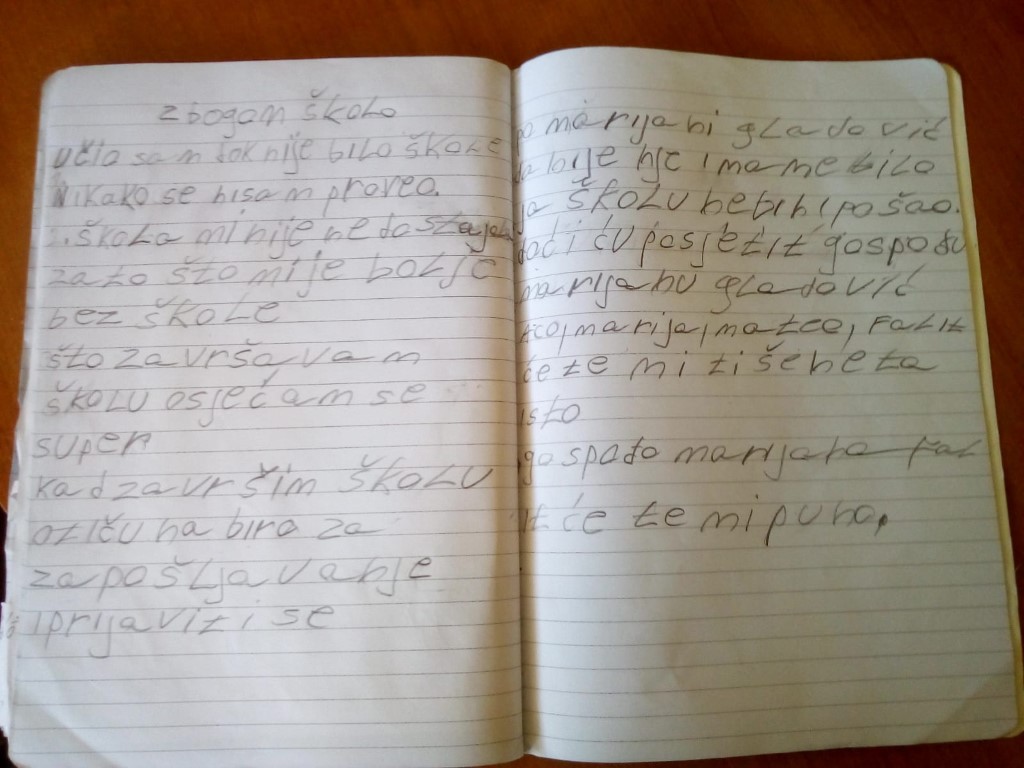 zbogom školo
učio sam dok nije bilo škole
Nikako se nisam proveo.
škola mi nije nedostajala
zato što mi je bolje
bez škole
što završavam
školu osjećam se
super
kad završim školu
otiču na biro za
zapošljavanje
i prijaviti se
po marijani gladović
da nije nje i mame bilo
ja školu nebih i pošao.
doći ću posjetit gospođu
marijanu gladović
teo, marija, mateo, falit
će te mi ti šeneta
isto
gospođo marijana fal
it će te mi puno.